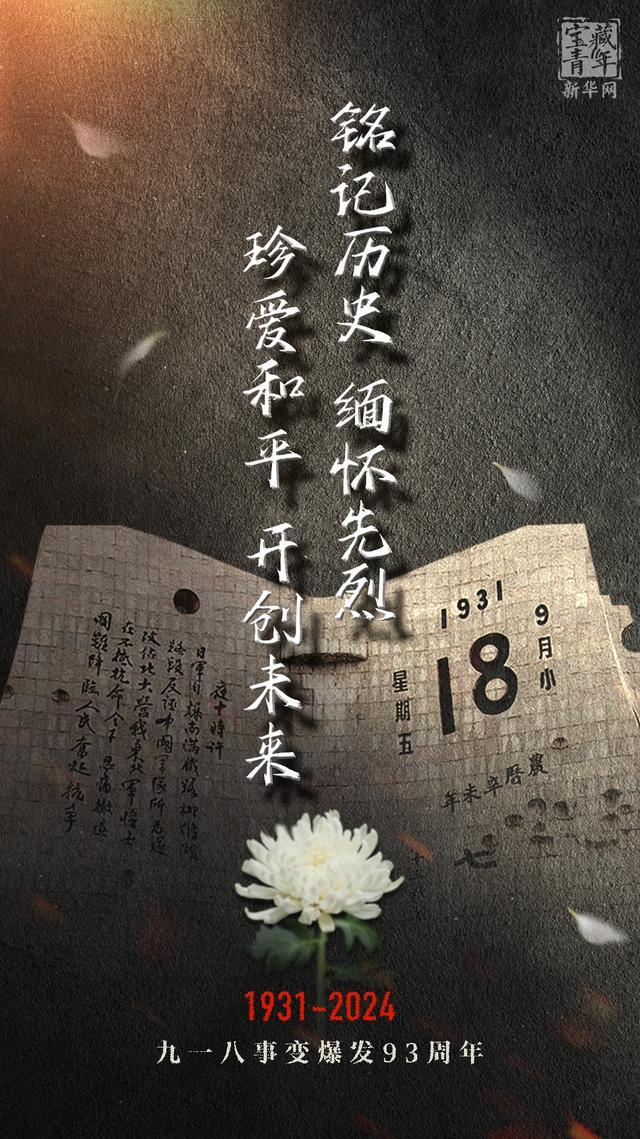 宝藏
青年
新华网
铭记历史 缅怀先烈
珍爱和平 开创未来
1931
9月小
18
星期五
農曆辛未年
七
夜十時許
日軍自爆南滿鐵路柳條湖
路段反誣中國軍隊所為遂
攻佔北大營我東北軍將士
在不抵抗命令下忍痛撤退
國難降臨人民奮起抗爭
1931-2024
九一八事变爆发93周年